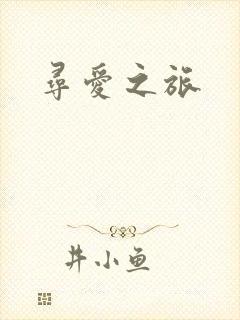 尋愛之旅
井小鱼